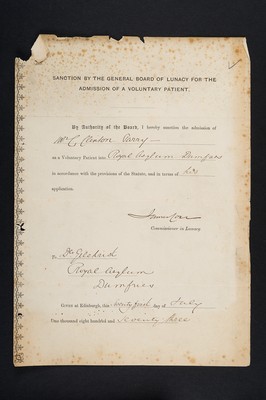 SANCTION BY THE GENERAL BOARD OF LUNACY FOR THE
ADMISSION OF A VOLUNTARY PATIENT.
By Authority of the Board, I hereby sanction the admission of
Mr C. Clinton Parry
as a Voluntary Patient into Royal Asylum Dumfries
in accordance with the provisions of the Statute, and in terms of his
application.
Commissioner in Lunacy
To Dr Gilchrist
Royal Asylum
Dumfries
Given at Edinburgh, this twenty first day of July
One thousand eight hundred and Seventy three